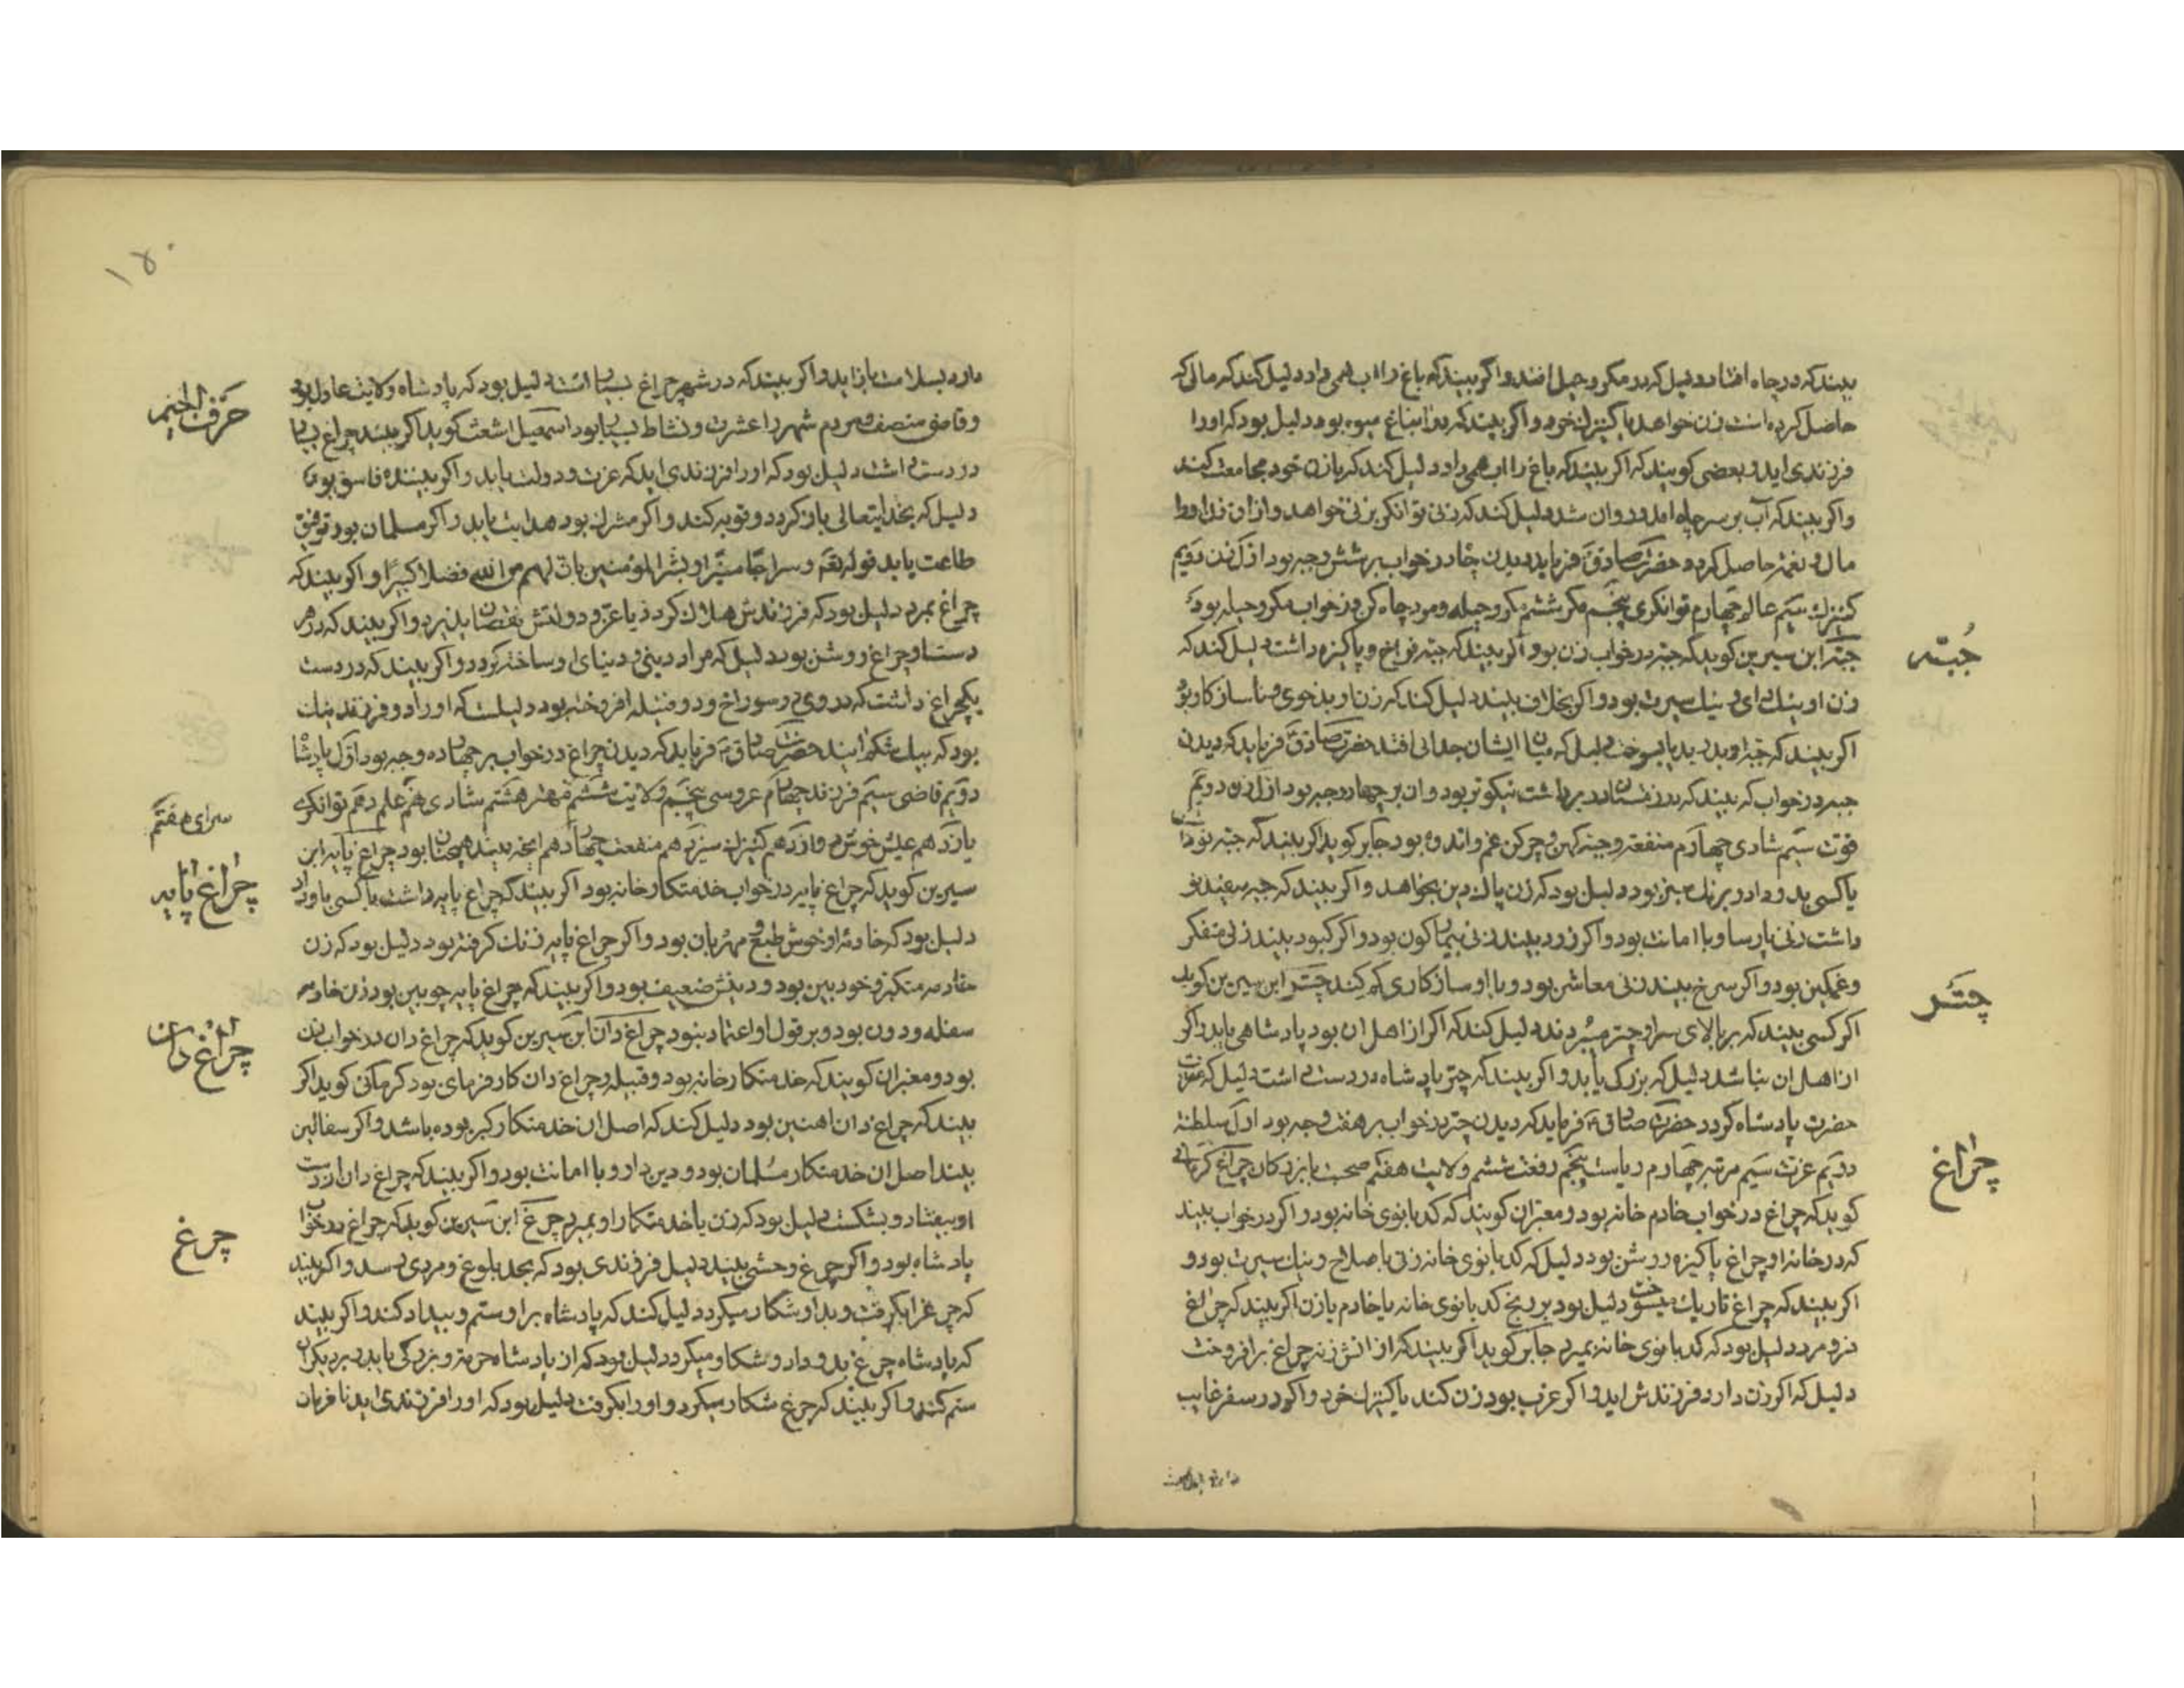 بیند که در چاه افتاد دلیل که در مکر و حیل افتد و اکر بیند که باغ را اب همی داد دلیل کند که مالی که
حاصل کرده است زن خواهد یا کنیزك خرد و اکر بیند که در ان باغ میوه بود دلیل بود که او را
فرزندی اید و بعضی کویند که اکر بیند که باغ را اب همی داد دلیل کند که بازن خود مجامعت کند
و اکر بیند که آب بر سر چاه امد و روان شد دلیل کند که زنی توانکر بزنی خواهد و از ان زن او را
مال و نعمة حاصل کردد حضرت صادق فرماید دیدن چاه در خواب بر شش وجه بود اول زن دویم
کنیزك سیم عالم چهارم توانکری پنجم مکر ششم مکر و حیله و مرد چاه کن در خواب مکر و حیله بود
جبّه ابن سیرین کوید که جبه در خواب زن بود و اکر بیند که جبه فراخ و پاکیزه داشت دلیل کند که
زن او نیك رای و نیك سیرت بود و اکر بخلاف بیند دلیل کند که زن او بدخوی و ناسازکار بود
اکر بیند که جبه او بدرید یا بسوخت دلیل که میان ایشان جدائی افتد حضرت صادق فرماید که دیدن
جبه در خواب که بیند که در زمستان در بر داشت نیکوتر بود و ان بر چهار وجه بود اول زن دویم
قوت سیم شادی چهارم منفعة و جبه کهن و چرکن غم و اندوه بود جابر کوید اکر بیند که جبه نو داشت
یا کسی بدو داد و برنك سبز بود دلیل بود که زن پاك دین بخواهد و اکر بیند که جبه سفید نو
داشت زنی پارسا و با امانت بود و اکر زرد بیند زنی بیمارکون بود و اکر کبود بیند زنی متفکر
و غمکین بود و اکر سرخ بیند زنی معاشر بود و با او سازکاری کم کند چتر ابن سیرین کوید
اکر کسی بیند که بر بالای سر او چتر میبردند دلیل کند که اکر از اهل ان بود پادشاهی یابد و اکر
از اهل ان نباشد دلیل که بزرکی یابد و اکر بیند که چتر پادشاه در دست وی است دلیل که
حضرت پادشاه کردد حضرت صادق فرماید که دیدن چتر در خواب بر هفت وجه بود اول سلطنة
دویم عزت سیم مرتبه چهارم ریاست پنجم رفعت ششم ولایت هفتم صحبت با بزرکان چراغ کرمانی
کوید که چراغ در خواب خادم خانه بود و معبران کویند که کدبانوی خانه بود و اکر در خواب بیند
که در خانه او چراغ پاکیزه و روشن بود دلیل که کدبانوی خانه زنی باصلاح و نیك سیرت بود و
اکر بیند که چراغ تاریك میسوخت دلیل بود بر رنج کدبانوی خانه یا خادم یا زن اکر بیند که چراغ
فرو مرد دلیل بود که کدبانوی خانه بمیرد جابر کوید اکر بیند که از اتش زنه چراغ برافروخت
دلیل که اکر زن دارد فرزندش اید و اکر عزب بود زن کند یا کنیزك خرد و اکر در سفر غایب
جُبّه
چتَر
چراغ
۱۵۰
دارد بسلامت باز اید و اکر بیند که در شهر چراغ بسیار است دلیل بود که پادشاه ولایت عادل بود
و قاضی منصف و مردم شهر را عشرت و نشاط بسیار بود اسمعیل اشعث کوید اکر بیند چراغ بسیار
در دست وی است دلیل بود که او را فرزندی اید که عزت و دولت یابد و اکر بیننده فاسق بود
دلیل که بخدایتعالی باز کردد و توبه کند و اکر مشرك بود هدایت یابد و اکر مسلمان بود توفیق
طاعت یابد قوله تع و سراجا منیرا و بشر المؤمنین بان لهم من الله فضلا کبیرا و اکر بیند که
چراغ بمرد دلیل بود که فرزندش هلاك کردد یا عز و دولتش نقصان پذیرد و اکر بیند که در هر
دست او چراغ روشن بود دلیل که مراد دینی و دنیای او ساخته کردد و اکر بیند که در دست
یکچراغ داشت که در وی دو سوراخ و دو فتیله افروخته بود دلیلست که او را دو فرزند نیك
بود که بیك شکم ایند حضرت صادق فرماید که دیدن چراغ در خواب بر چهارده وجه بود اول پادشاه
دویم قاضی سیم فرزند چهارم عروسی پنجم ولایت ششم مهتر هشتم شادی نهم علم دهم توانکری
یازدهم عیش خوش دوازدهم کنیزك سیزدهم منفعت چهاردهم انچه بیند همچنان بود چراغ پایه ابن
سیرین کوید که چراغ پایه در خواب خدمتکار خانه بود اکر بیند که چراغ پایه داشت یا کسی باو داد
دلیل بود که خادمه او خوش طبع و مهربان بود و اکر چراغ پایه زنك کرفته بود دلیل بود که زن
خادمه متکبر و خودبین بود و دینش ضعیف بود و اکر بیند که چراغ پایه چوبین بود زن خادمه
سفله و دون بود و بر قول او اعتماد نبود چراغ دان ابن سیرین کوید که چراغ دان در خواب زن
بود و معبران کویند که خدمتکار خانه بود و فتیله چراغ دان کارفرمای بود کرمانی کوید اکر
بیند که چراغ دان اهنین بود دلیل کند که اصل ان خدمتکار کبر بوده باشد و اکر سفالین
بیند اصل ان خدمتکار مسلمان بود و دین دار و با امانت بود و اکر بیند که چراغ دان از دست
او بیفتاد و بشکست دلیل بود که زن یا خدمتکار او بمیرد چرغ ابن سیرین کوید که چرغ در خواب
پادشاه بود و اکر چرغ وحشی بیند دلیل فرزندی بود که بحد بلوغ و مردی رسد و اکر بیند
که چرغ را بکرفت و بدو شکار میکرد دلیل کند که پادشاه بر او ستم و بیداد کند و اکر بیند
که پادشاه چرغ بدو داد و شکار میکرد دلیل بود که از پادشاه حرمة و بزرکی یابد بر دیکران
ستم کند و اکر بیند که چرغ شکار میکرد و او را بکرفت دلیل بود که او را فرزندی اید نافرمان
حرف الجیم
سرای هفتم
چراغ پایه
چراغ دان
چرغ